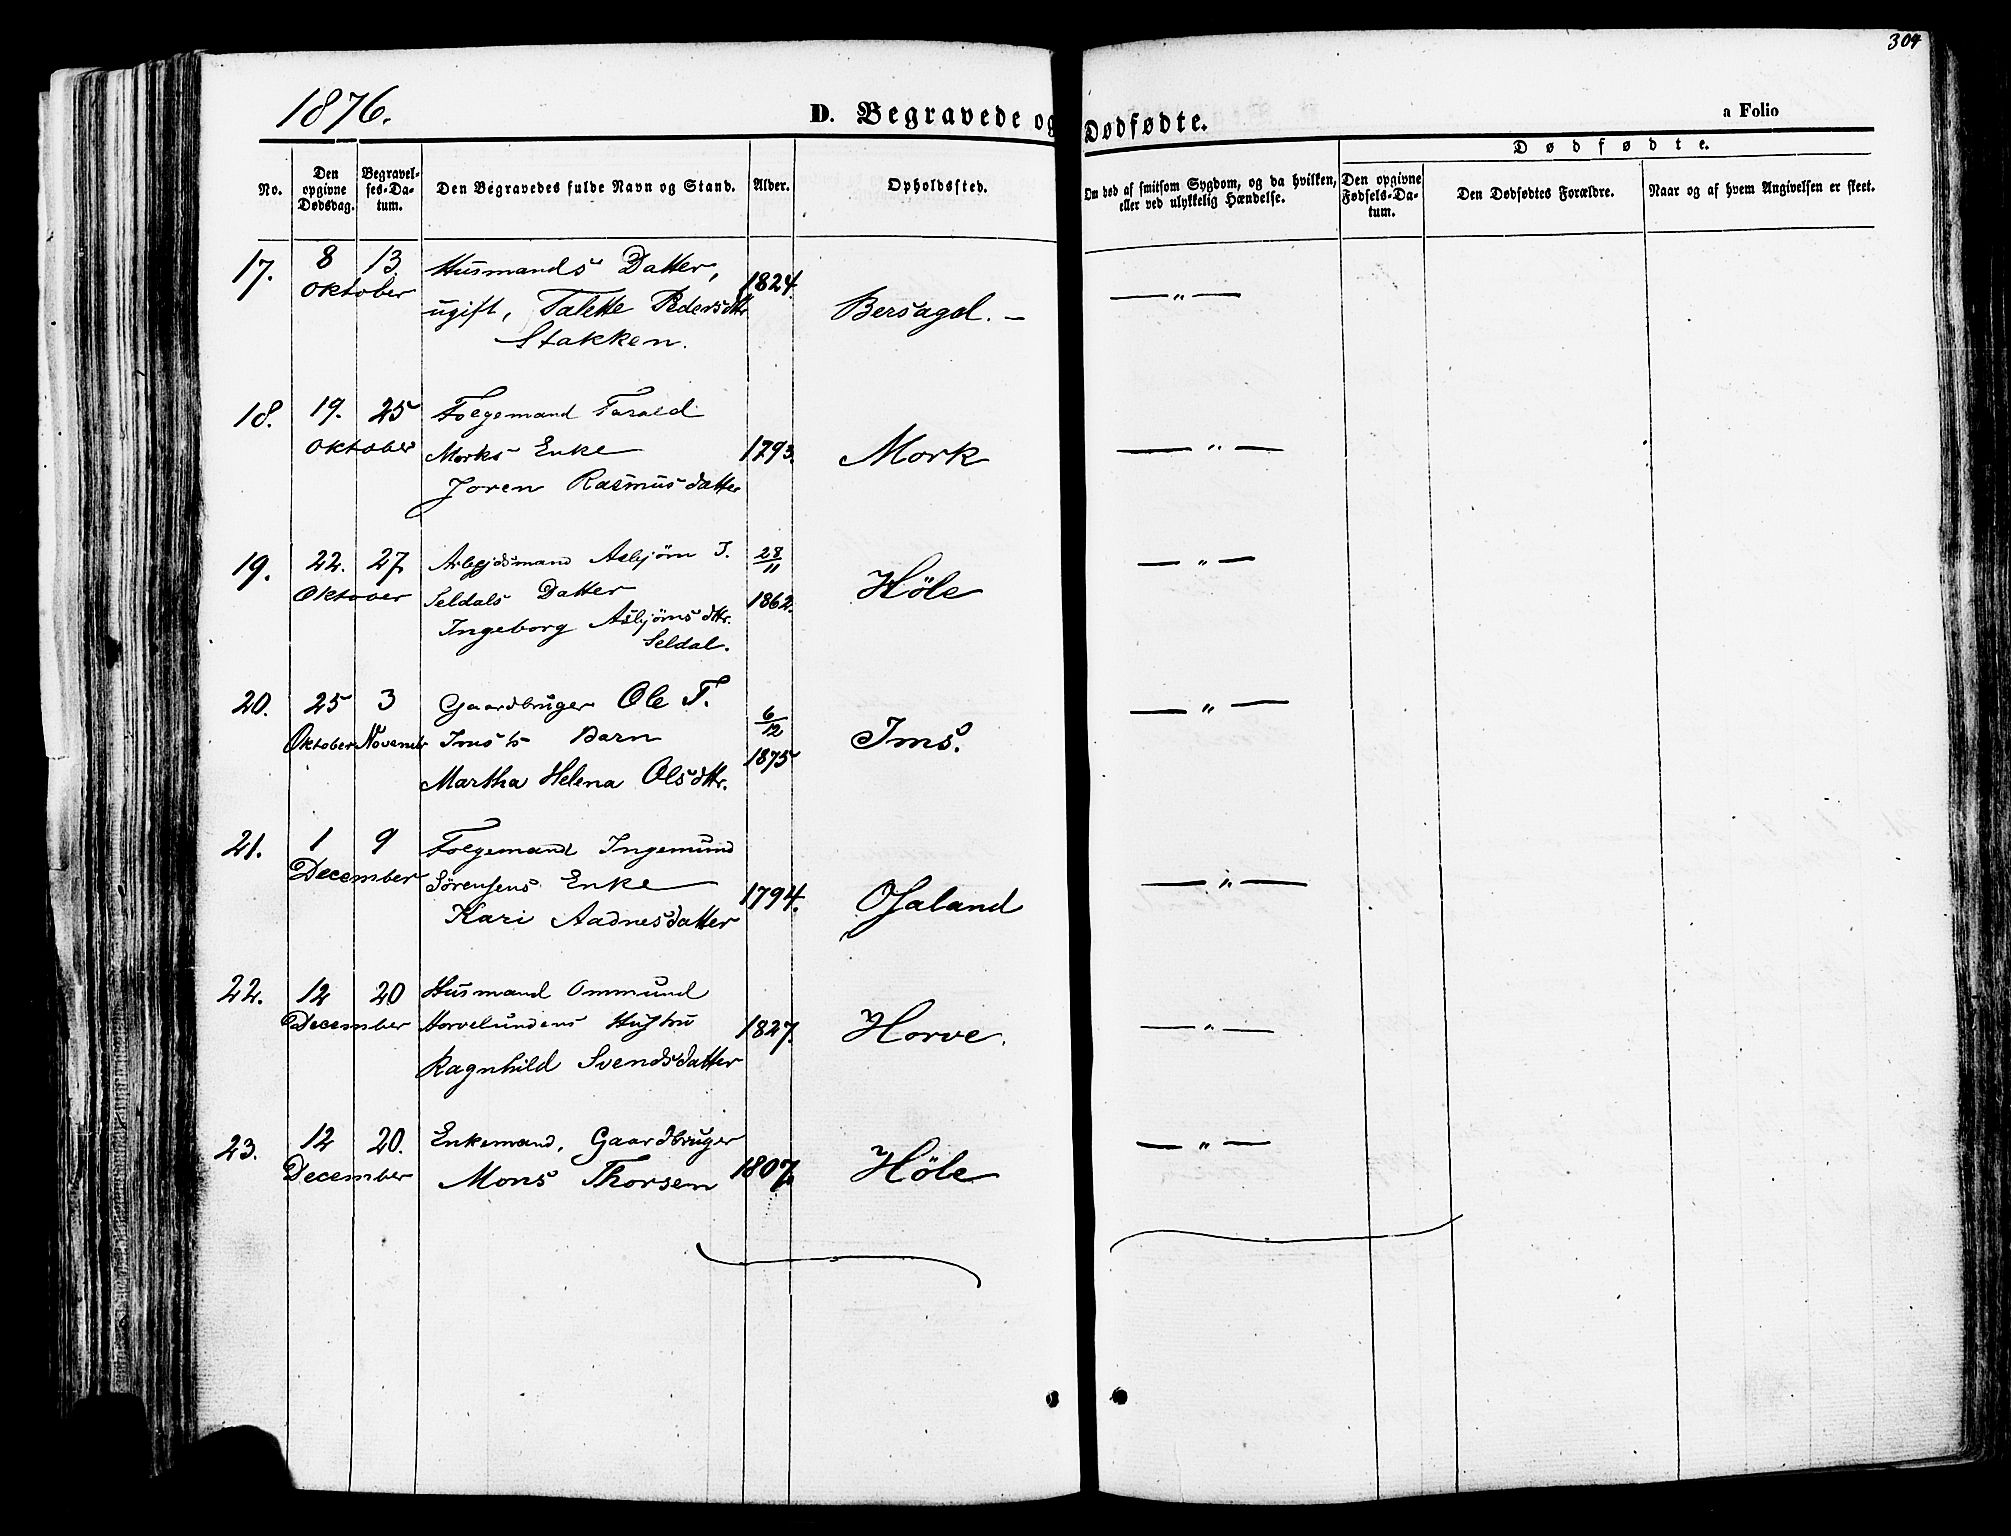 304
1876.
D. Begravede og Dødfødte.
a Folio
No.
Den opgivne Dødsdag.
Begravelses-Datum.
Den Begravedes fulde Navn og Stand.
Alder.
Opholdssted.
Om død af smitsom Sygdom, og da hvilken, eller ved ulykkelig Hændelse.
Dødfødte.
Den opgivne Fødsels-Datum.
Den Dødfødtes Forældre.
Naar og af hvem Angivelsen er skeet.
17. 8 13. Husmands Datter, 1824.
Oktober ugift, Talette Pedersdtr Bersagel. — — " —
Stakken.
18. 19. 25 Folgemand Tarald
Oktober Morks Enke 1793. Mork — " —
Joren Rasmusdatter
19. 22. 27. Arbejdsmand Asbjørn T. 28/11 — " —
Oktober Seldals Datter 1862. Høle
Ingeborg Asbjørnsdtr.
Seldal.
20. 25 3 Gaardbruger Ole T. 6/12 — " —
Oktober November Ims's Barn 1875 Ims.
Martha Helena Olsdtr.
21. 1 9 Folgemand Ingemund
December Sørensens Enke 1794. Osaland — " —
Kari Aadnesdatter
22. 12 20 Husmand Ommund
December Horvelundens Hustru 1827. Horve. — " —
Ragnhild Svendsdatter
23. 12 20. Enkemand, Gaardbruger — " —
December Mons Thorsen 1807. Høle